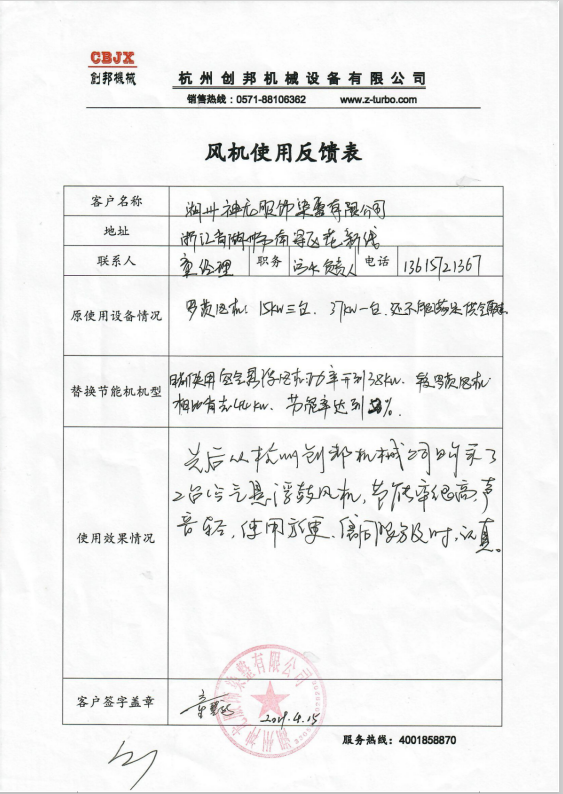 CBJX
創邦機械
杭州创邦机械设备有限公司
销售热线：0571-88106362 www.z-turbo.com
风机使用反馈表
客户名称 湖州神龙服饰染整有限公司
地址 浙江省湖州市南浔区 新线
联系人 章经理 职务 污水负责人 电话 13615721367
原使用设备情况 罗茨风机：15kw三台、37kw一台，还不能满足供气
替换节能机机型 使用空气悬浮风机功率开到38kw，较罗茨风机
相比 节能率达到 %。
使用效果情况 先后从杭州创邦机械公司购买了
2台空气悬浮鼓风机，节能率很高，声
音轻，使用方便，售后服务及时，认真。
客户签字盖章 章 4.15
湖州神龙服饰染整有限公司
服务热线：4001858870